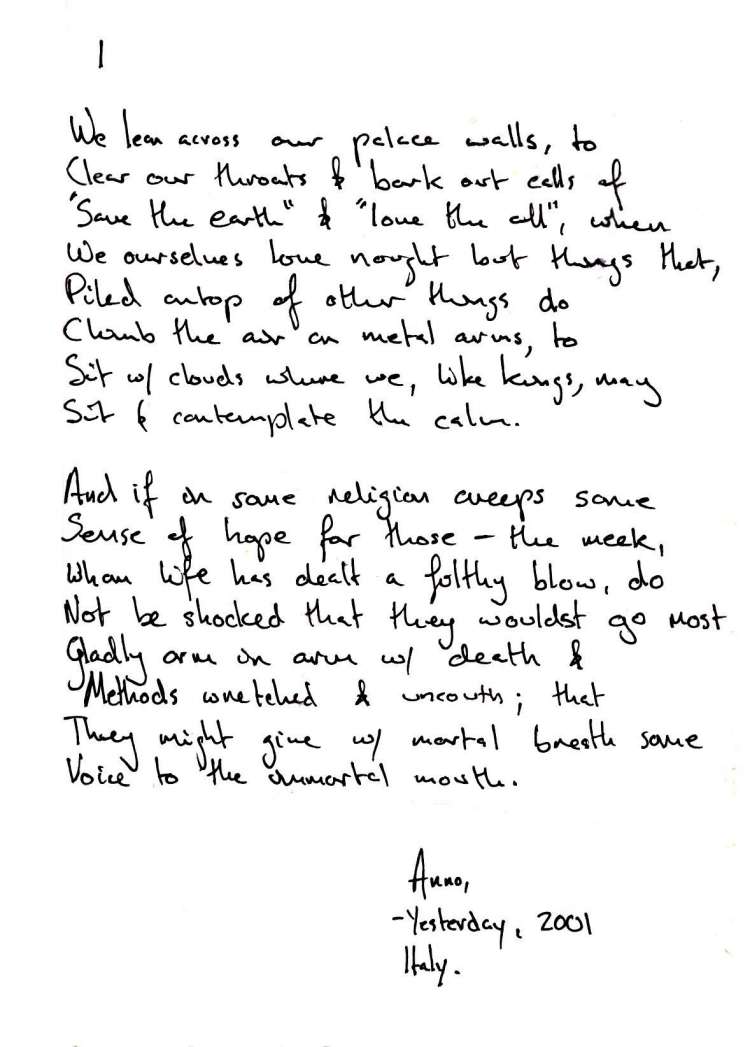 1
We lean across our palace walls, to
Clear our throats & bark out calls of
"Save the earth" & "love the all", when
We ourselves love nought but things that,
Piled ontop of other things do
Climb the air on metal arms, to
Sit w/ clouds where we, like kings, may
Sit & contemplate the calm.
And if in some religion creeps some
Sense of hope for those – the meek,
Whom life has dealt a filthy blow, do
Not be shocked that they wouldst go most
Gladly arm in arm w/ death &
Methods wretched & uncouth; that
They might give w/ mortal breath some
Voice to the immortal mouth.
Anno,
-Yesterday, 2001
Italy.